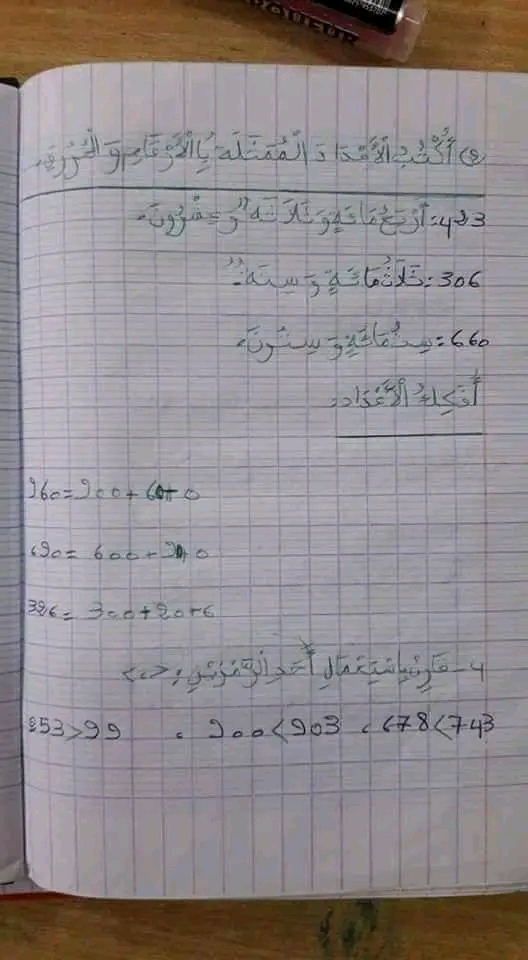 2) أَكْتُبُ الْأَعْدَادَ الْمُمَثَّلَةَ بِالْأَرْقَامِ وَ الْحُرُوفِ.
423 = أَرْبَعُ مَائَةٍ وَ ثَلَاثَةٌ وَ عِشْرُونَ.
306 = ثَلَاثُمَائَةٍ وَ سِتَّةٌ.
660 = سِتُّمَائَةٍ وَ سِتُّونَ.
أُفَكِّكُ الْأَعْدَادَ:
260 = 200 + 60 + 0
690 = 600 + 90 + 0
326 = 300 + 20 + 6
4 - قَارِنْ بِاسْتِعْمَالِ أَحَدِ الرَّمْزَيْنِ: <، >
678 < 743 ، 200 < 203 ، 253 > 99